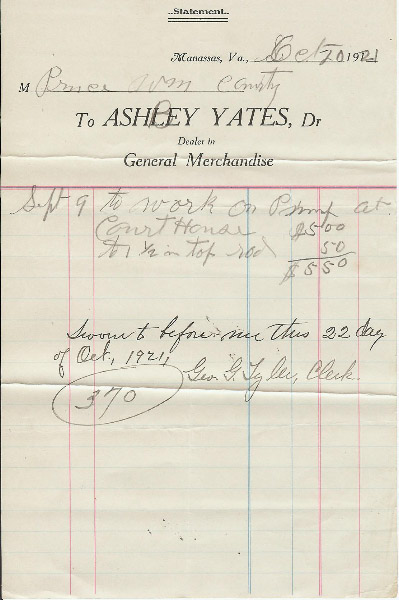 ..Statement..
Manassas, Va., Oct 20 1921
M Prince Wm County
To ASHBEY YATES, Dr
Dealer in
General Merchandise
Sept 9 to work on Pump at
Court House $5 00
to 1 1/2 in top rod 50
$5 50
Sworn to before me this 22 day
of Oct, 1921,
Geo. G. Tyler, Clerk.
370